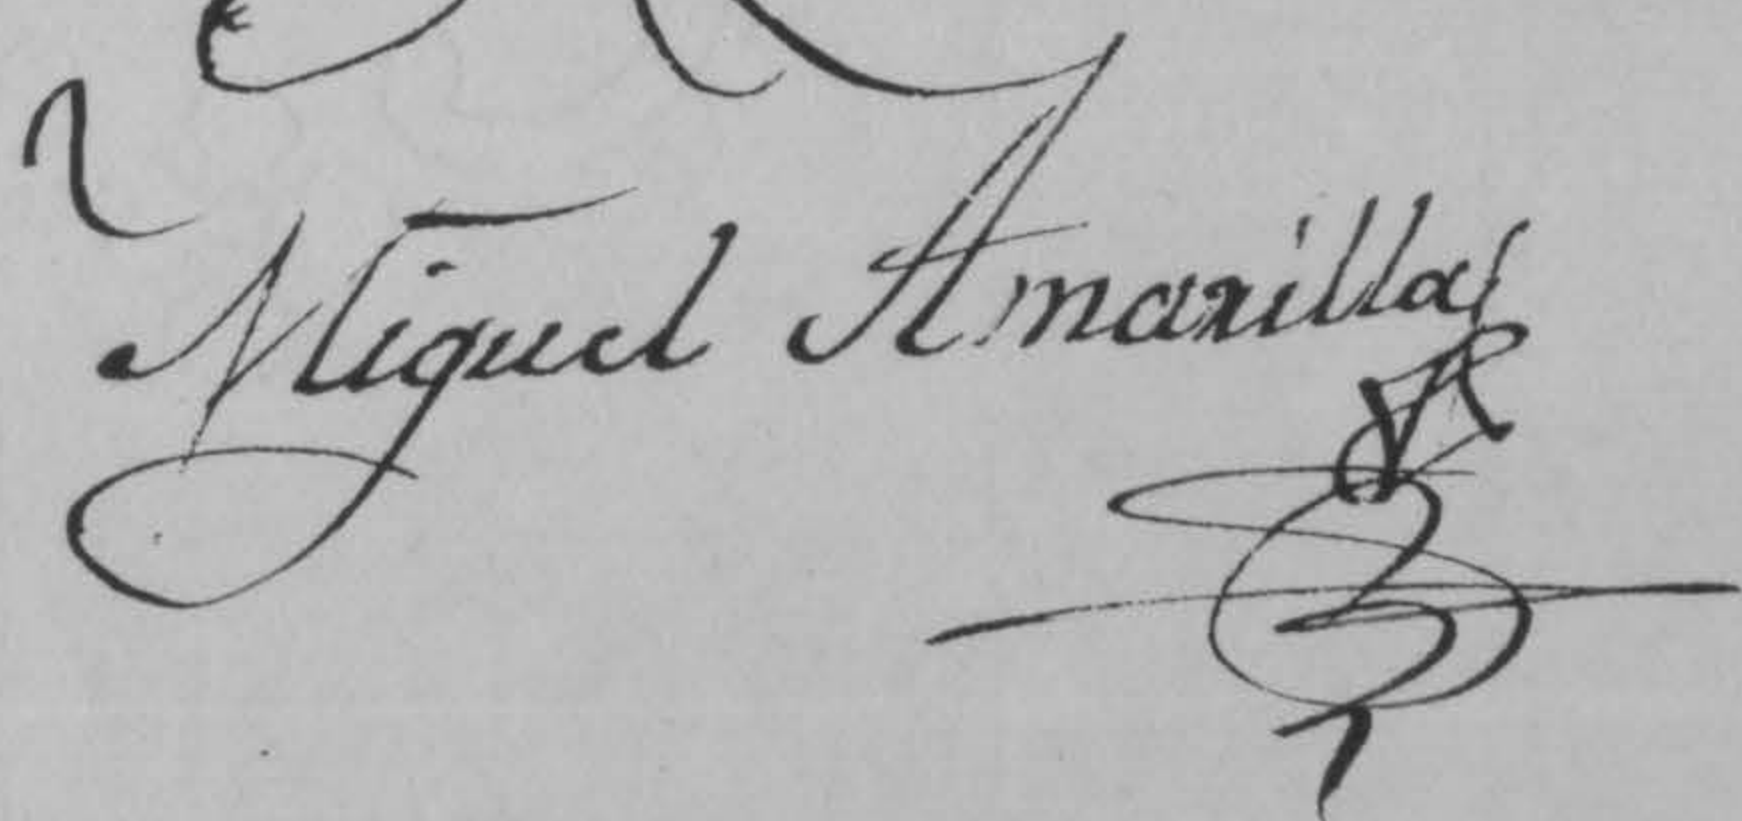 Miguel Amarilla